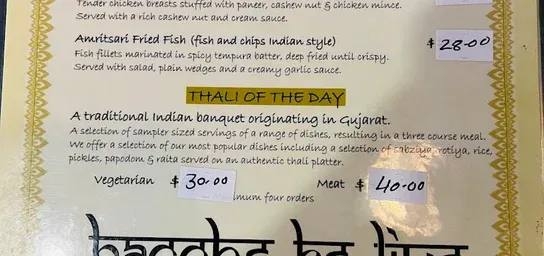 Tender chicken breasts stuffed with paneer, cashew nut & chicken mince.
Served with a rich cashew nut and cream sauce.
Amritsari Fried Fish (fish and chips Indian style) $ 28-00
Fish fillets marinated in spicy tempura batter, deep fried until crispy.
Served with salad, plain wedges and a creamy garlic sauce.
THALI OF THE DAY
A traditional Indian banquet originating in Gujarat.
A selection of sampler sized servings of a range of dishes, resulting in a three course meal.
We offer a selection of our most popular dishes including a selection of sabziya, rotiya, rice,
pickles, papodom & raita served on an authentic thali platter.
Vegetarian $ 30-00 Meat $ 40-00
imum four orders